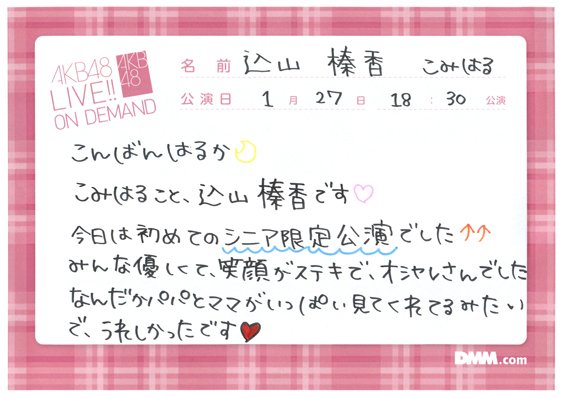 AKB48
LIVE!!
ON DEMAND
AKB
48
名前 込山 榛香 こみはる
公演日 1月27日 18:30公演
こんばんはるか
こみはること、込山榛香です♡
今日は初めてのシニア限定公演でした↑↑
みんな優しくて、笑顔がステキで、オシャレさんでした
なんだかパパとママがいっぱい見てくれてるみたい
で、うれしかったです♥
DMM.com